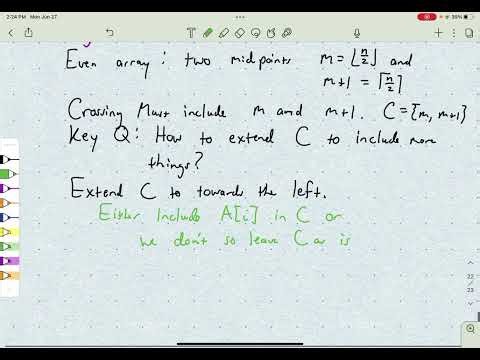 2:24 PM Mon Jun 27
36%
Even array: two midpoints m = ⌊n/2⌋ and
m+1 = ⌈n/2⌉
Crossing Must include m and m+1. C=[m, m+1]
Key Q: How to extend C to include more
things?
Extend C to towards the left.
Either include A[i] in C or
we don't so leave C as is
22
23